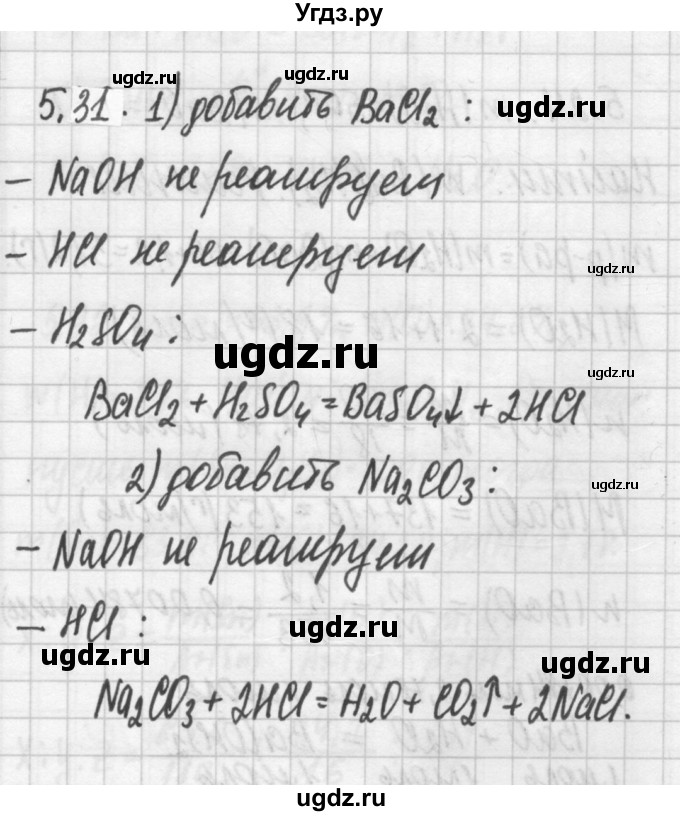 Угдз.ру
ugdz.ru ugdz.ru
5.31. 1) добавить BaCl₂ : ugdz.ru
– NaOH не реагирует
– HCl не реагирует ugdz.ru
– H₂SO₄ :
ugdz.ru ugdz.ru
BaCl₂ + H₂SO₄ = BaSO₄↓ + 2HCl
2) добавить Na₂CO₃ : ugdz.ru
– NaOH не реагирует
– HCl : ugdz.ru
ugdz.ru ugdz.ru
Na₂CO₃ + 2HCl = H₂O + CO₂↑ + 2NaCl.
ugdz.ru